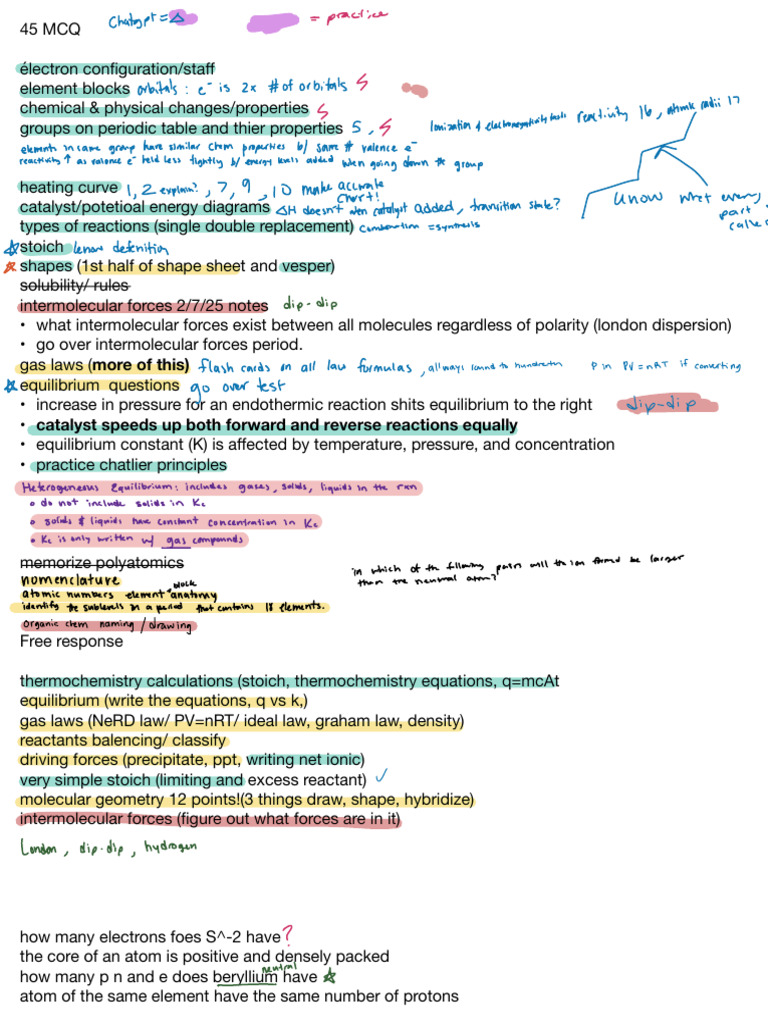 45 MCQ
Chatgpt = △
= practice
électron configuration/staff
element blocks orbitals : e⁻ is 2x # of orbitals
chemical & physical changes/properties
groups on periodic table and thier properties 5 ,
Ionization & electronegativity reactivity 16 , atomic radii 17
elements in same group have similar chem properties b/ same # valence e⁻
reactivity ↑ as valence e⁻ held less tightly b/ energy levels added wen going down the group
heating curve 1, 2 explain? , 7, 9 , 10 make accurate chart!
catalyst/potetioal energy diagrams △H doesn't wen catalyst added , transition state?
know wht every part called
types of reactions (single double replacement) combination = synthesis
stoich know definition
shapes (1st half of shape sheet and vesper)
solubility/ rules
intermolecular forces 2/7/25 notes dip-dip
• what intermolecular forces exist between all molecules regardless of polarity (london dispersion)
• go over intermolecular forces period.
gas laws (more of this) flash cards on all law formulas , allways round to hundreths P in PV=nRT if converting
equilibrium questions go over test
• increase in pressure for an endothermic reaction shits equilibrium to the right dip-dip
• catalyst speeds up both forward and reverse reactions equally
• equilibrium constant (K) is affected by temperature, pressure, and concentration
• practice chatlier principles
Heterogeneous Equilibrium: includes gases, solids, liquids in the rxn
• do not include solids in Kc
• solids & liquids have constant concentration in Kc
• Kc is only written w/ gas compounds
memorize polyatomics
in which of the fllowing pairs will the ion formed be larger
than the neutral atom?
nomenclature
atomic numbers element block anatomy
identify the sublevels in a period that contains 18 elements.
organic chem naming / drawing
Free response
thermochemistry calculations (stoich, thermochemistry equations, q=mcAt
equilibrium (write the equations, q vs k,)
gas laws (NeRD law/ PV=nRT/ ideal law, graham law, density)
reactants balencing/ classify
driving forces (precipitate, ppt, writing net ionic)
very simple stoich (limiting and excess reactant) ✓
molecular geometry 12 points!(3 things draw, shape, hybridize)
intermolecular forces (figure out what forces are in it)
London , dip-dip , hydrogen
how many electrons foes S^-2 have?
the core of an atom is positive and densely packed
how many p n and e does neutral beryllium have
atom of the same element have the same number of protons